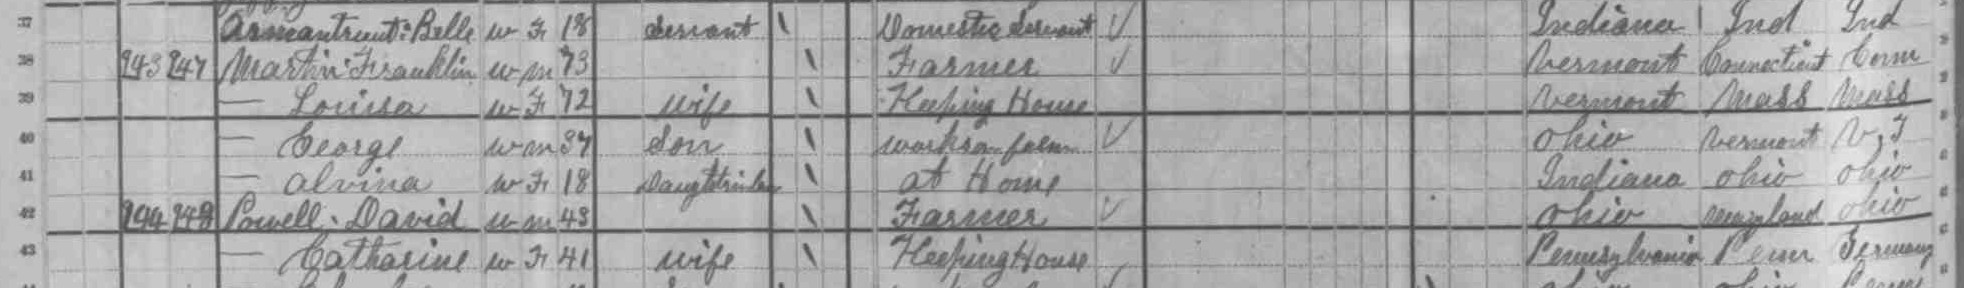 37 Armantrout Belle w F 18 Servant \ Domestic Servant Indiana Ind Ind
38 243 247 Martin Franklin w m 73 \ Farmer Vermont Connecticut Conn
39 — Louisa w F 72 wife \ Keeping House Vermont Mass Mass
40 — George w m 37 Son \ works on farm Ohio Vermont V,T
41 — Alvina w F 18 \ at Home Indiana Ohio Ohio
42 244 248 Powell David w m 43 \ Farmer Ohio Maryland Ohio
43 — Catharine w F 41 wife \ Keeping House Pennsylvania Penn Germany